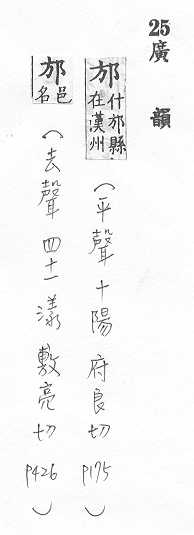 25廣 韻
邡 什邡縣在漢州 (平聲 十陽 府良切 P175)
邡 邑名 (去聲 四十一漾 敷亮切 P426)